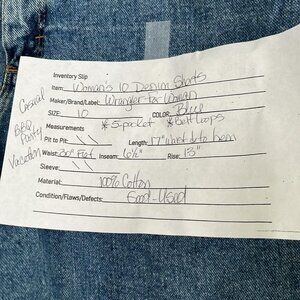 Inventory Slip
Item: Woman's 10 Denim Shorts
Maker/Brand/Label: Wrangler for Woman
SIZE: 10 COLOR: Blue
Measurements * 5 pocket * Belt Loops
Pit to Pit: \\ Length: 17" waist to hem
Waist: 30" Flat Inseam: 6½" Rise: 13"
Sleeve: \\
Material: 100% Cotton
Condition/Flaws/Defects: Good - Used
Casual
BBQ
Party
Vacation